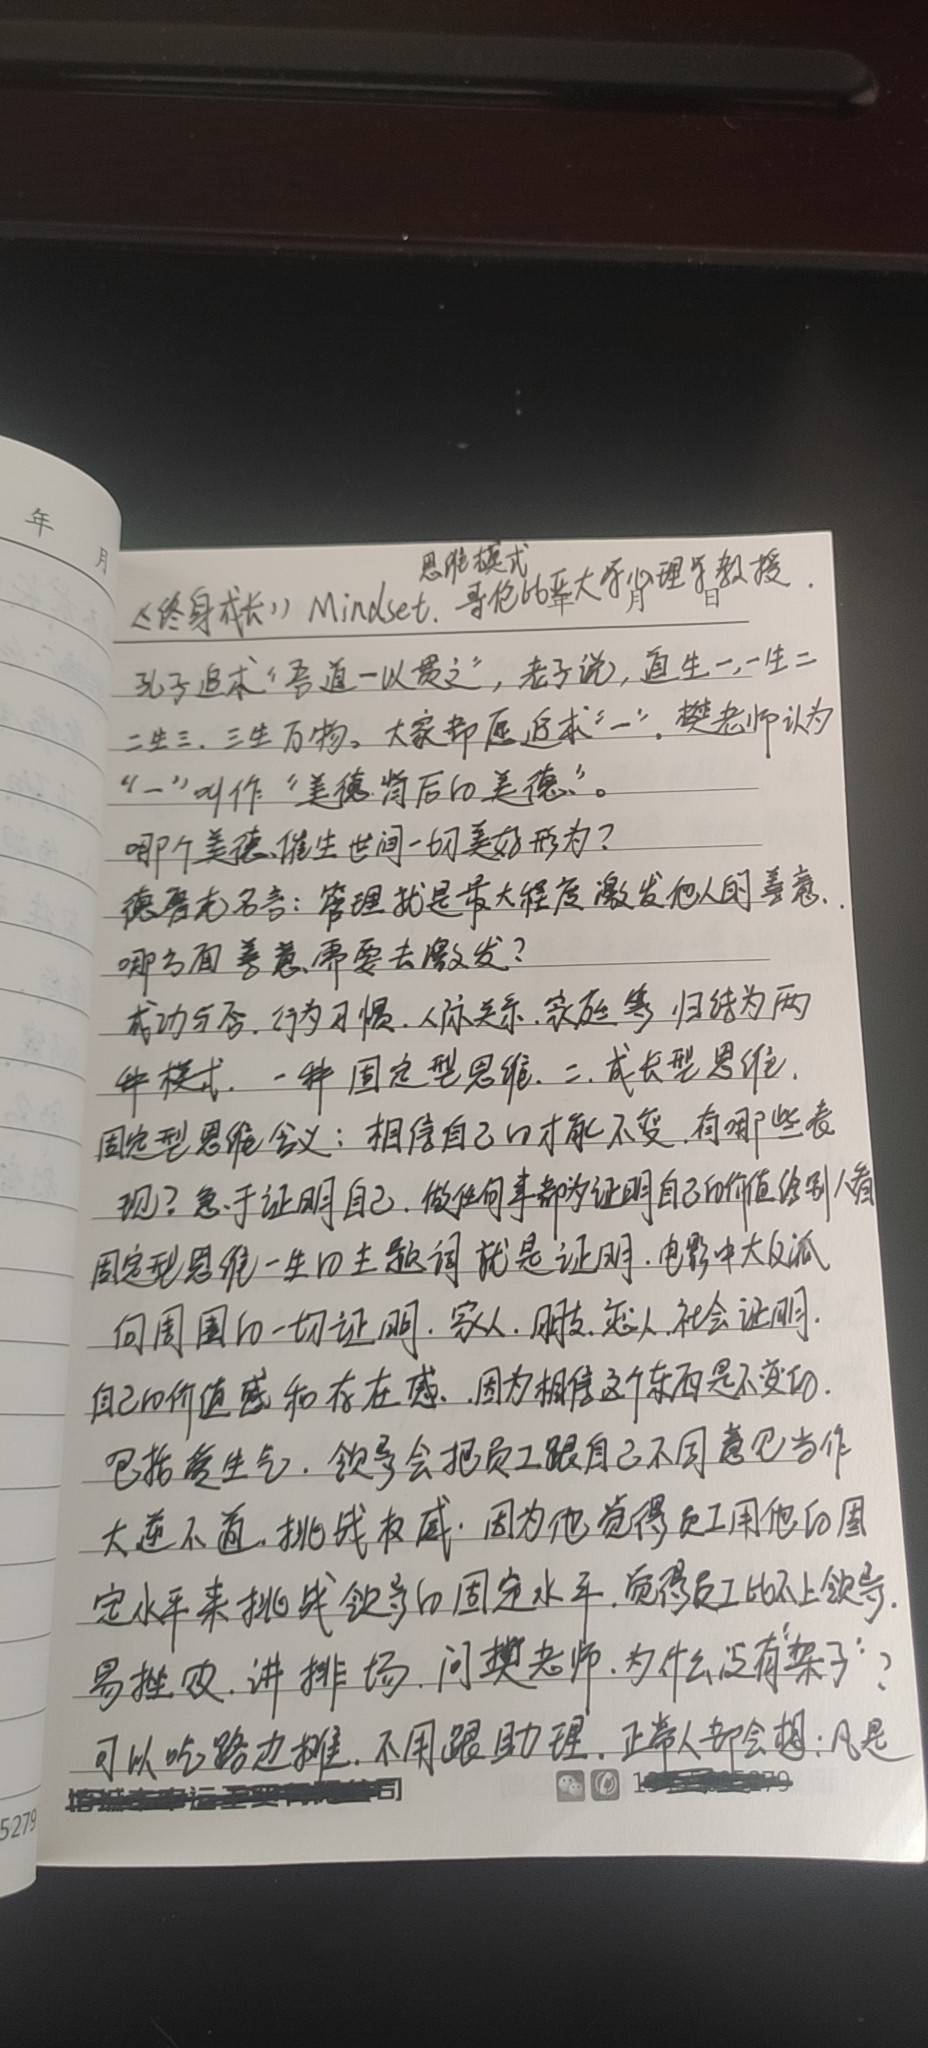 年 月
思维模式
《终身成长》 Mindset. 哥伦比亚大学心理学教授.
年 月 日
孔子追求“吾道一以贯之”, 老子说, 道生一, 一生二
二生三, 三生万物。大家都愿追求“一”. 樊老师认为
“一”叫作“美德背后的美德”。
哪个美德、催生世间一切美好形为?
德鲁克名言: 管理就是最大程度激发他人的善意.
哪方面善意、需要去激发?
成功与否. 行为习惯. 人际关系. 家庭等 归结为两
种模式. 一种 固定型思维. 二. 成长型思维.
固定型思维含义: 相信自己的才能不变. 有哪些表
现? 急于证明自己. 做任何事都为证明自己的价值给别人看
固定型思维一生的主题词就是证明. 电影中大反派
向周围的一切证明. 家人. 朋友. 恋人. 社会证明.
自己的价值感和存在感. 因为相信这个东西是不变的.
包括爱生气. 领导会把员工跟自己不同意见当作
大逆不道. 挑战权威. 因为他觉得员工用他的固
定水平来挑战领导的固定水平. 觉得员工比不上领导.
易挫败. 讲排场. 问樊老师. 为什么没有“架子”?
可以吃路边摊. 不用跟助理. 正常人都会想: 凡是
司
5279